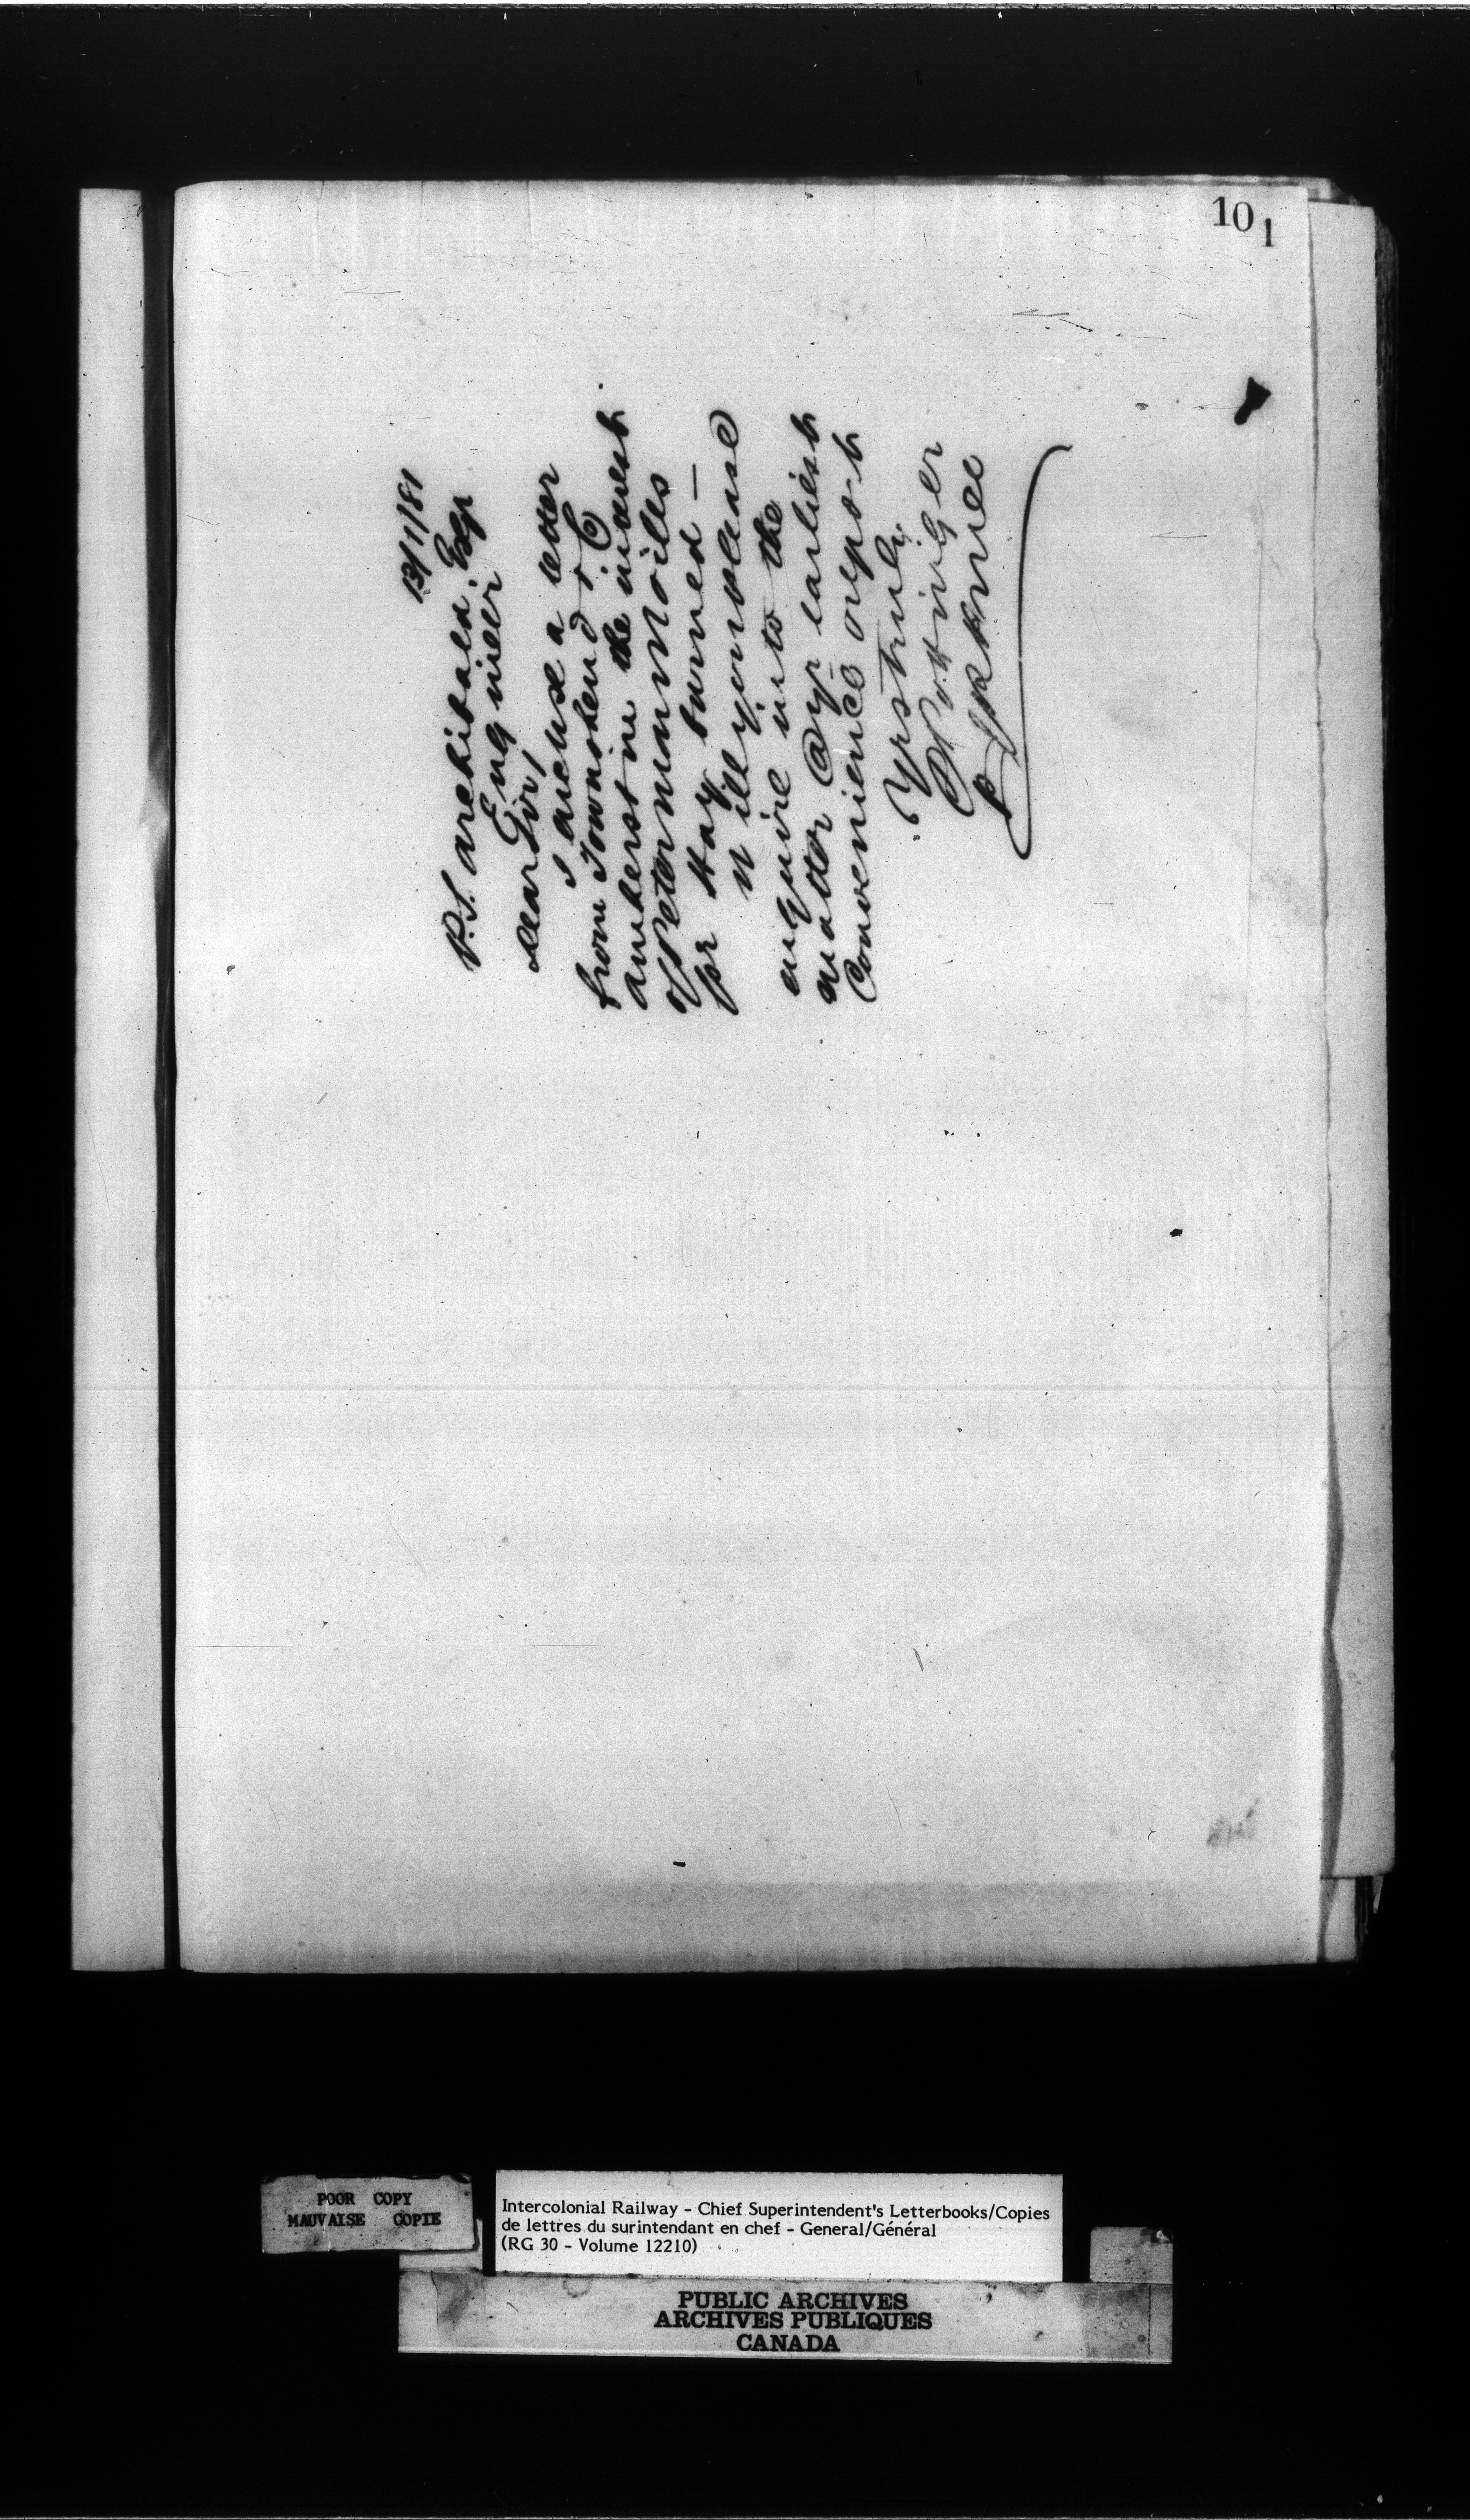 101
13/1/81
P.S. Archibald. Esqr
Engineer
Dear Sir,
I enclose a letter
from Townshend & 
Amherst in the interest
of Peter 
for Hay burned —
Will you please
enquire into the
matter @ yr earliest
convenience & report
Yrs truly
D Pottinger

POOR COPY
MAUVAISE COPIE
Intercolonial Railway - Chief Superintendent's Letterbooks/Copies
de lettres du surintendant en chef - General/Général
(RG 30 - Volume 12210)
PUBLIC ARCHIVES
ARCHIVES PUBLIQUES
CANADA